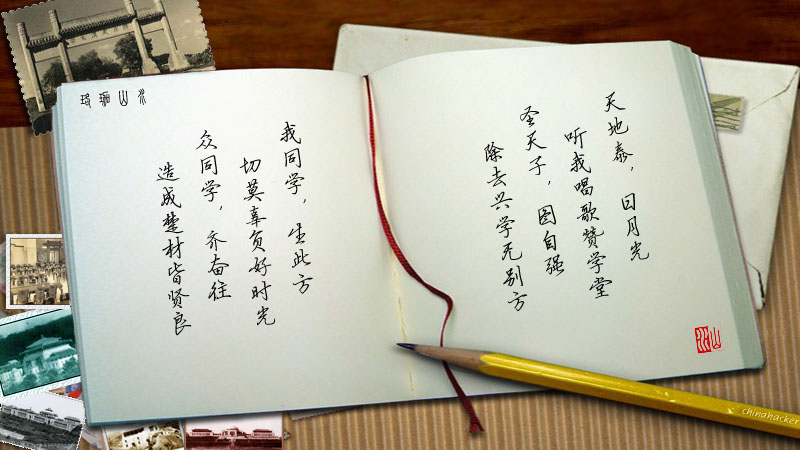 天地泰，日月光
听我唱歌赞学堂
圣天子，图自强
除去兴学无别方
我同学，生此方
切莫辜负好时光
众同学，齐奋往
造成楚材皆贤良
珞珈山水
山水
chinahacker